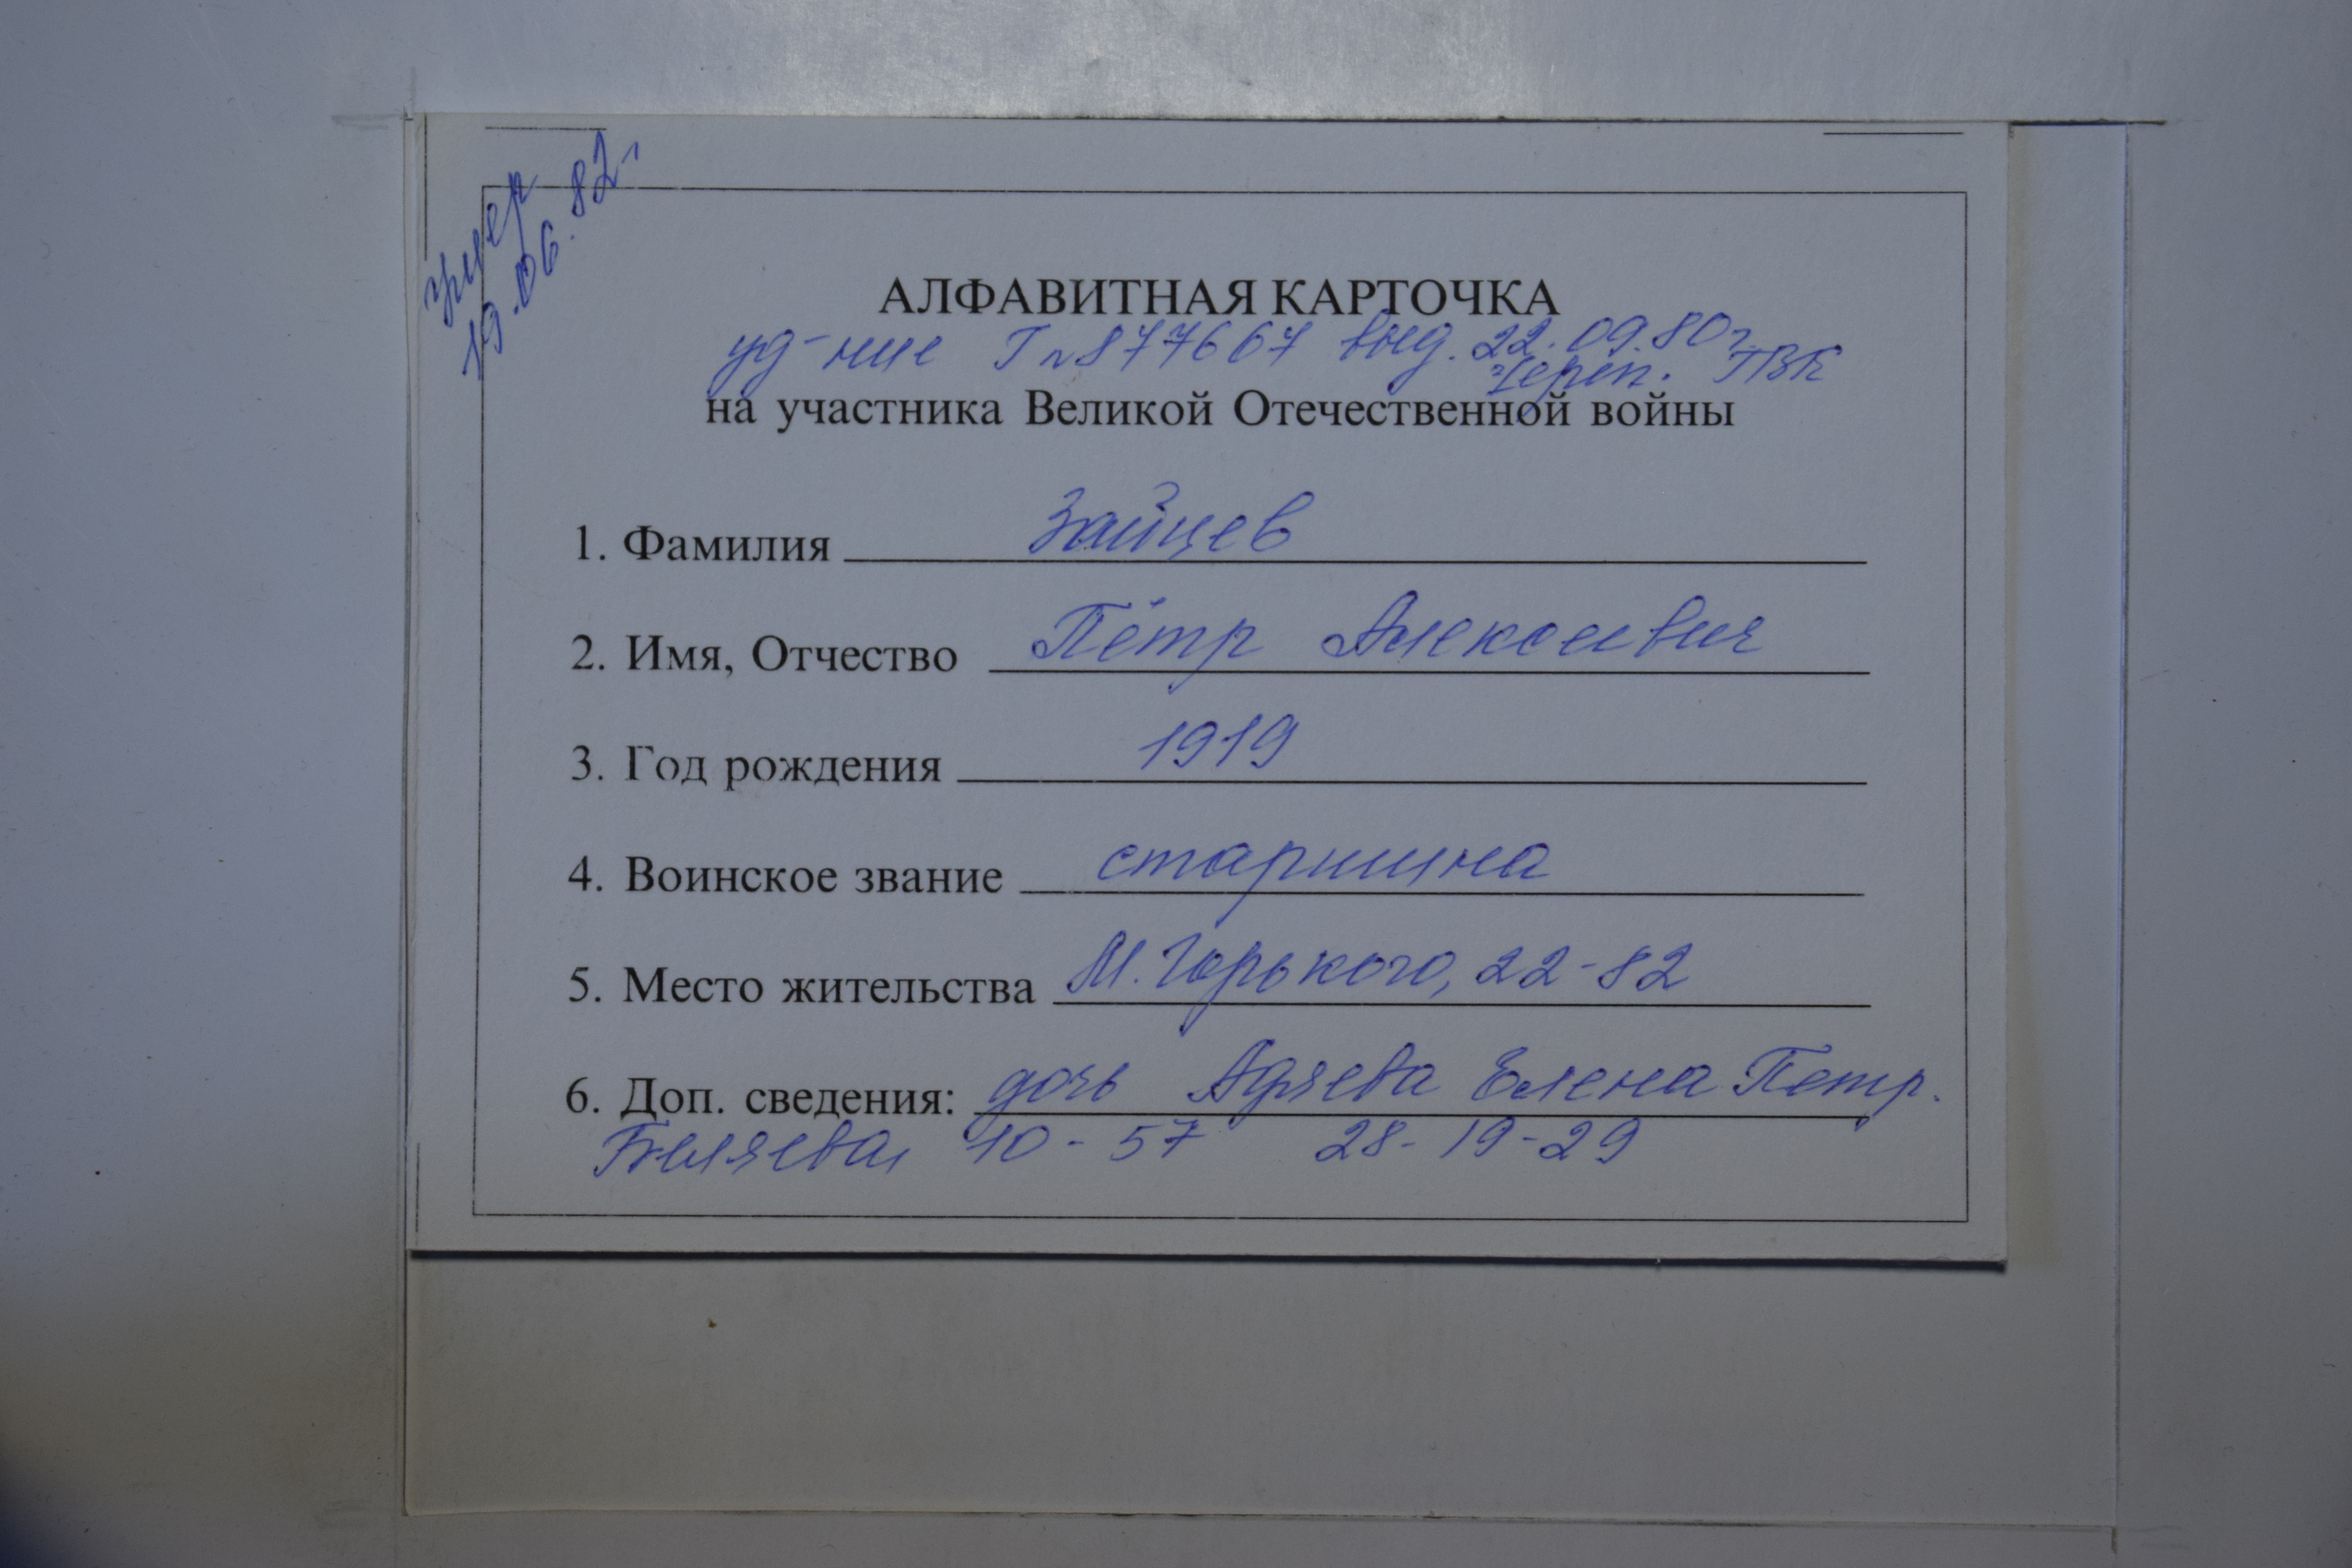 умер
19.06.82г
АЛФАВИТНАЯ КАРТОЧКА
уд-ние Г №877667 выд. 22.09.80г.
Череп. ГВК
на участника Великой Отечественной войны
1. Фамилия Зайцев
2. Имя, Отчество Пётр Алексеевич
3. Год рождения 1919
4. Воинское звание старшина
5. Место жительства М.Горького, 22-82
6. Доп. сведения: дочь Елена Петр.
Беляева, 10-57 28-19-29